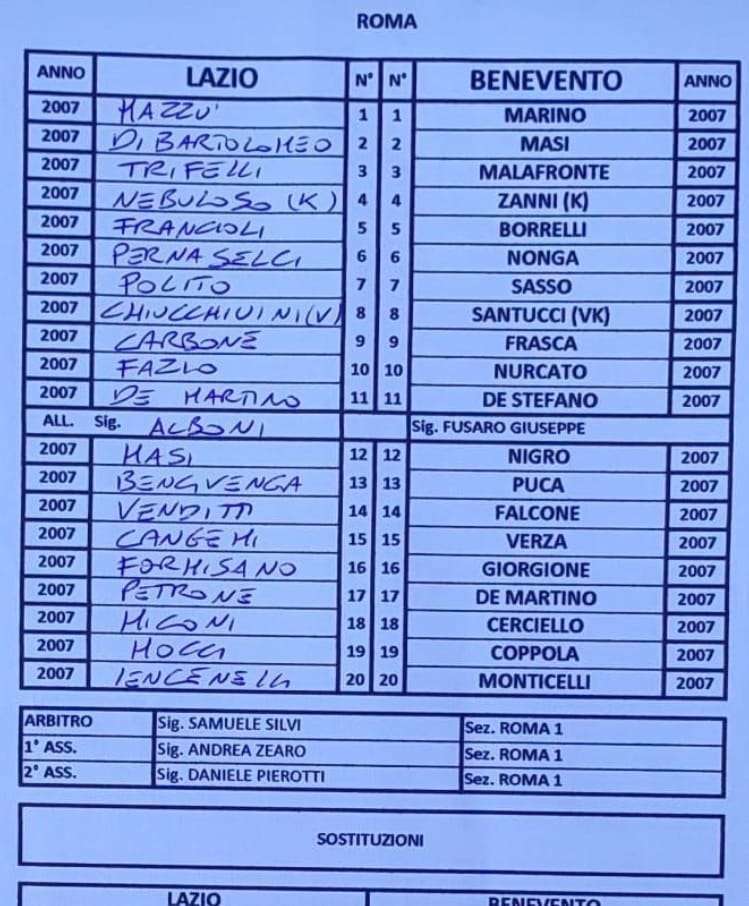 ROMA
ANNO LAZIO N° N° BENEVENTO ANNO
2007 MAZZU' 1 1 MARINO 2007
2007 DI BARTOLOMEO 2 2 MASI 2007
2007 TRIFELLI 3 3 MALAFRONTE 2007
2007 NEBULOSO (K) 4 4 ZANNI (K) 2007
2007 FRANCIOLI 5 5 BORRELLI 2007
2007 PERNASELCI 6 6 NONGA 2007
2007 POLITO 7 7 SASSO 2007
2007 CHIUCCHIUINI (V) 8 8 SANTUCCI (VK) 2007
2007 CARBONE 9 9 FRASCA 2007
2007 FAZIO 10 10 NURCATO 2007
2007 DE MARTINO 11 11 DE STEFANO 2007
ALL. Sig. ALBONI Sig. FUSARO GIUSEPPE
2007 MASI 12 12 NIGRO 2007
2007 BENGVENGA 13 13 PUCA 2007
2007 VENDITTI 14 14 FALCONE 2007
2007 CANGEMI 15 15 VERZA 2007
2007 FORMISANO 16 16 GIORGIONE 2007
2007 PETRONE 17 17 DE MARTINO 2007
2007 MIGONI 18 18 CERCIELLO 2007
2007 MOCCI 19 19 COPPOLA 2007
2007 20 20 MONTICELLI 2007
ARBITRO Sig. SAMUELE SILVI Sez. ROMA 1
1° ASS. Sig. ANDREA ZEARO Sez. ROMA 1
2° ASS. Sig. DANIELE PIEROTTI Sez. ROMA 1
SOSTITUZIONI
LAZIO BENEVENTO